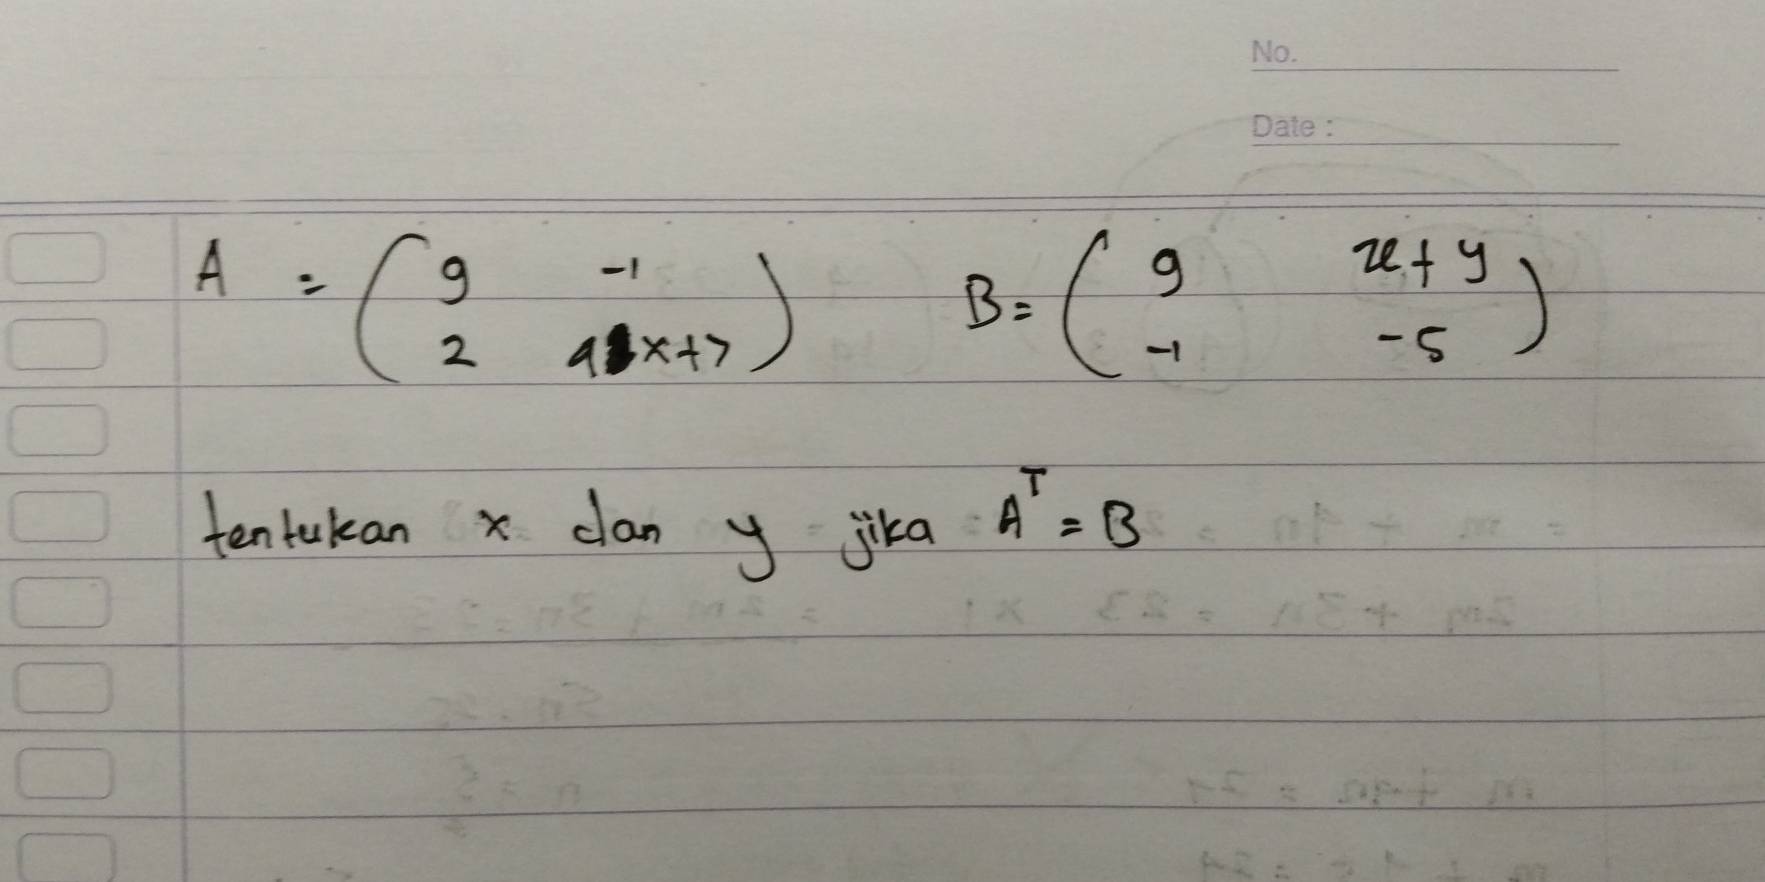 No.
Date :
A = ( 9 -1 ) B = ( 9 x + y )
( 2 4x+7 ) ( -1 -5 )
tentukan x dan y jika A^T = B